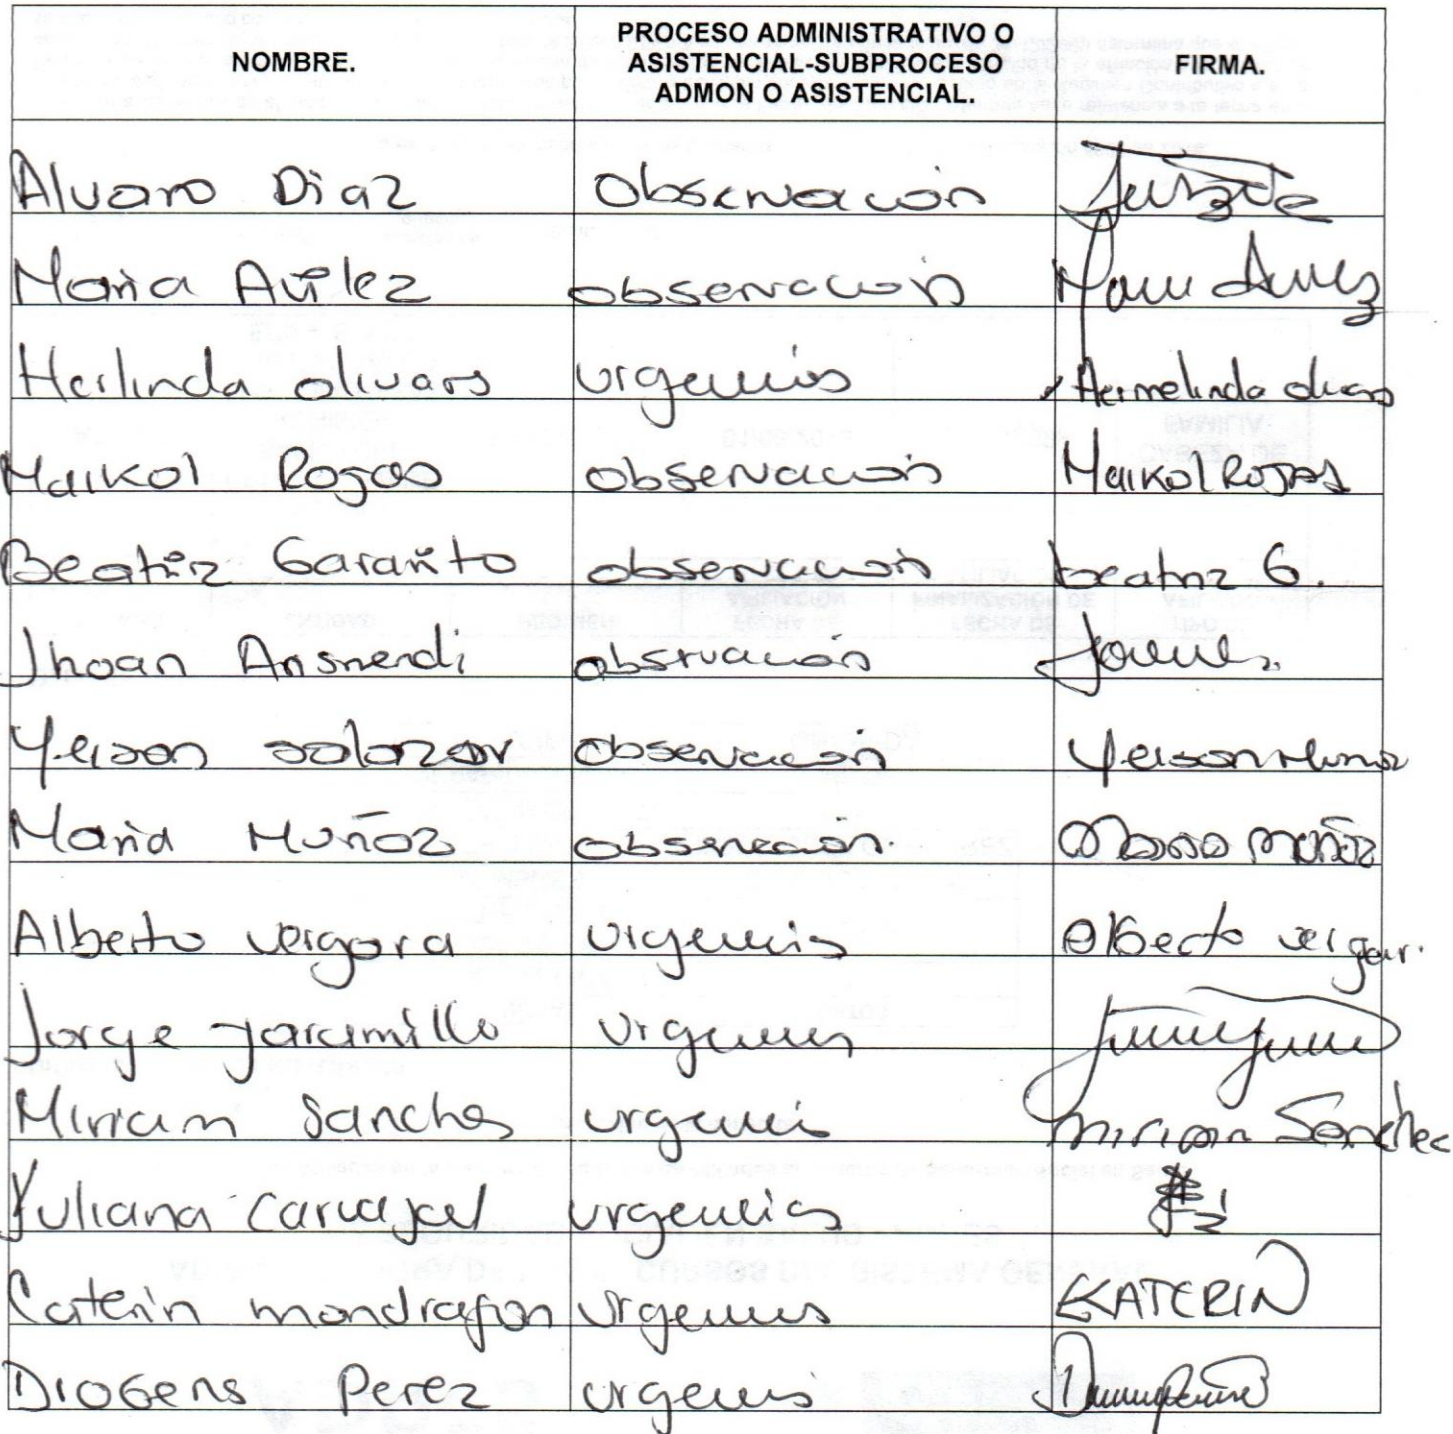 NOMBRE. PROCESO ADMINISTRATIVO O ASISTENCIAL-SUBPROCESO ADMON O ASISTENCIAL. FIRMA.
Alvaro Diaz observación
Maria Avilez observación
Herlinda olivars urgencias Hermelinda
Maikol Rojas observación Maikol Rojas
Beatriz Garañito observación beatriz G.
Jhoan Arismendi observación
Yeison salazar observación Yeison
Maria Muñoz observación. Maria Muñoz
Alberto vergara urgencias Alberto vergar.
Jorge jaramillo urgencias
Miriam Sanches urgencis miriam Sanchec
Yuliana Carvajal urgencias
Caterin mondragon Urgencias KATERIN
DIOGENS Perez urgencis